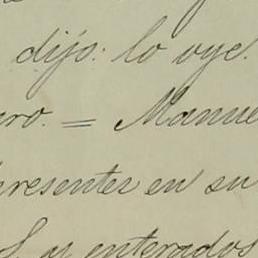 dijo: lo oye.
ro. = Manue
resentes en su
y enterados